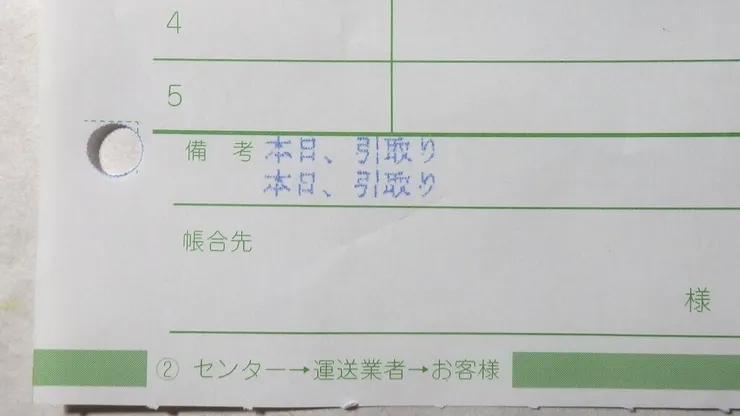 4
5
備考 本日、引取り
本日、引取り
帳合先
様
② センター→運送業者→お客様